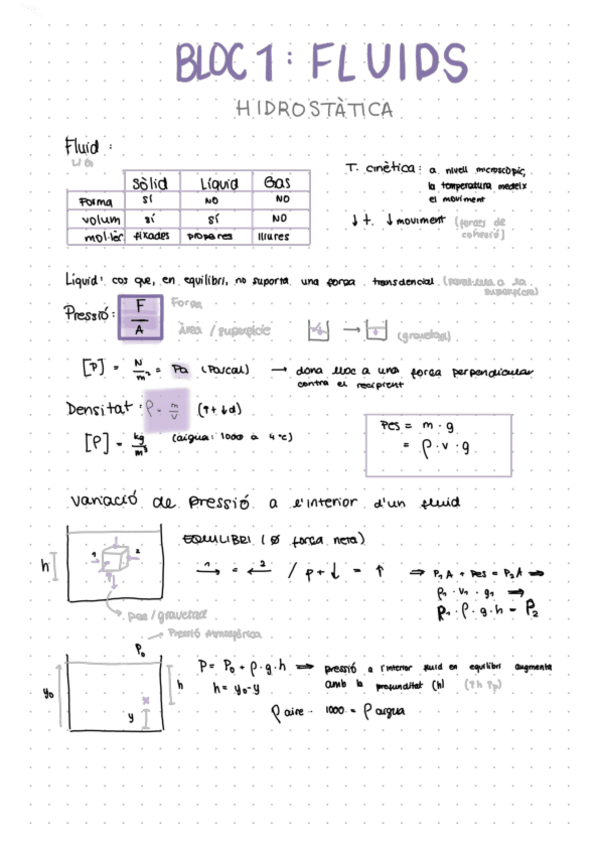 BLOC 1: FLUIDS
HIDROSTÀTICA
Fluid:
Sòlid Líquid Gas
Forma SÍ NO NO
volum SÍ SÍ NO
mol·lèc fixades properes lliures
T. cinètica: a nivell microscòpic,
la temperatura mesura
el moviment
↓ t. ↓ moviment (forces de
cohesió)
Líquid: cos que, en equilibri, no suporta una força
Pressió: F / A
Força
Àrea / superfície
(gravetat)
[P] = N/m² = Pa (Pascal) → dona lloc a una força perpendicular
contra el recipient
Densitat: ρ = m/v (↑t ↓d)
[ρ] = kg/m³ (aigua: 1000 a 4°c)
Pes = m · g
= ρ · v · g
variació de pressió a l'interior d'un fluid
EQUILIBRI (Ø força neta)
h
1 2
1→ = ←2 / p + ↓ = ↑ ⇒ P₁A + Pes = P₂A ⇒
pes / gravetat
Pressió atmosfèrica
P₀
P = P₀ + ρ · g · h ⇒ pressió a l'interior fluid en equilibri augmenta
h = y₀ - y amb la profunditat (h) (↑h ↑p)
y₀ h
y
ρ aire · 1000 = ρ aigua